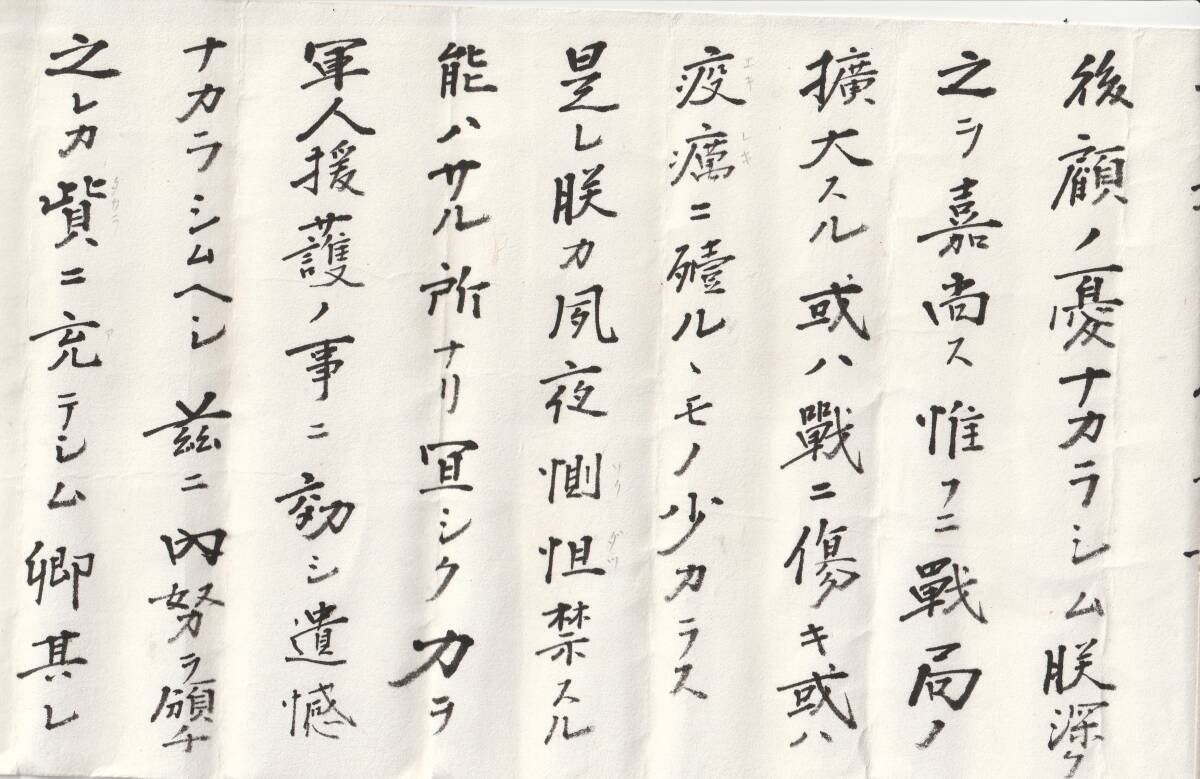 後顧ノ憂ナカラシム朕深ク
之ヲ嘉尚ス惟フニ戰局ノ
擴大スル或ハ戰ニ傷キ或ハ
疫癘ニ殪ルヽモノ少カラス
エキ レキ
是レ朕カ夙夜惻怛禁スル
ソク ダツ
能ハサル所ナリ宜シク力ヲ
軍人援護ノ事ニ効シ遺憾
ナカラシムヘシ茲ニ內努ヲ頒チ
之レカ貲ニ充テシム卿其レ
ア